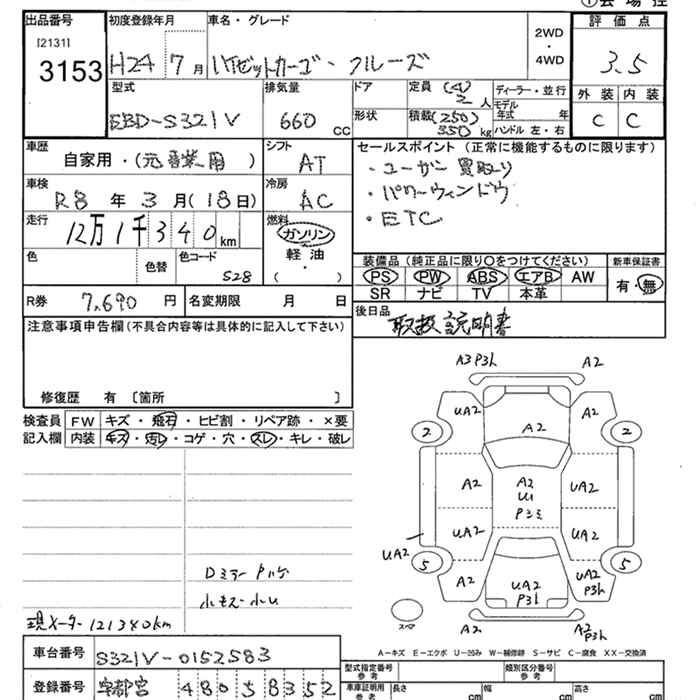 出品番号 初度登録年月 車名・グレード 2WD ・ 4WD 評価点
[2131]
3153 H24 7月 ハイゼットカーゴ・クルーズ 3.5
型式 排気量 ドア 定員 (4) 2 人 ディーラー・並行 外装 内装
モデル年式 年
EBD-S321V 660 CC 形状 積載 (250) 350 kg ハンドル 左・右 C C
車歴 シフト セールスポイント (正常に機能するものに限ります)
自家用・(元営業用) AT ・ユーザー買取り
車検 冷房 ・パワーウィンドウ
R8年3月(18日) AC ・ETC
走行 燃料
12万1千340km ガソリン
色 色替 色コード S28 軽油 ・ ( )
装備品 (純正品に限り〇をつけてください) 新車保証書
PS PW ABS エアB AW 有・無
SR ナビ TV 本革
R券 7,690円 名変期限 月 日
後日品 取扱説明書
注意事項申告欄(不具合内容等は具体的に記入して下さい)
修復歴 有 〔箇所 〕
検査員記入欄 FW キズ・飛石・ヒビ割・リペア跡・×要
内装 キズ・汚レ・コゲ・穴・スレ・キレ・破レ
A3 P3h A2
UA2 A2
2 A2 2
A2 A2 U1 P3ミ UA2
UA2 UA2
UA2
5 5
A2 UA2 P3h UA2 P3h
スペア A2 A2 P3h
Dミラー
小キズ・小U
現メーター 121340km
A-キズ E-エクボ U-凹み W-補修跡 S-サビ C-腐食 XX-交換済
車台番号 S321V-0152583
登録番号 宇都宮 480 5 8352
型式指定番号 参考 類別区分番号 参考
車庫証明用 参考 長さ cm 幅 cm 高さ cm